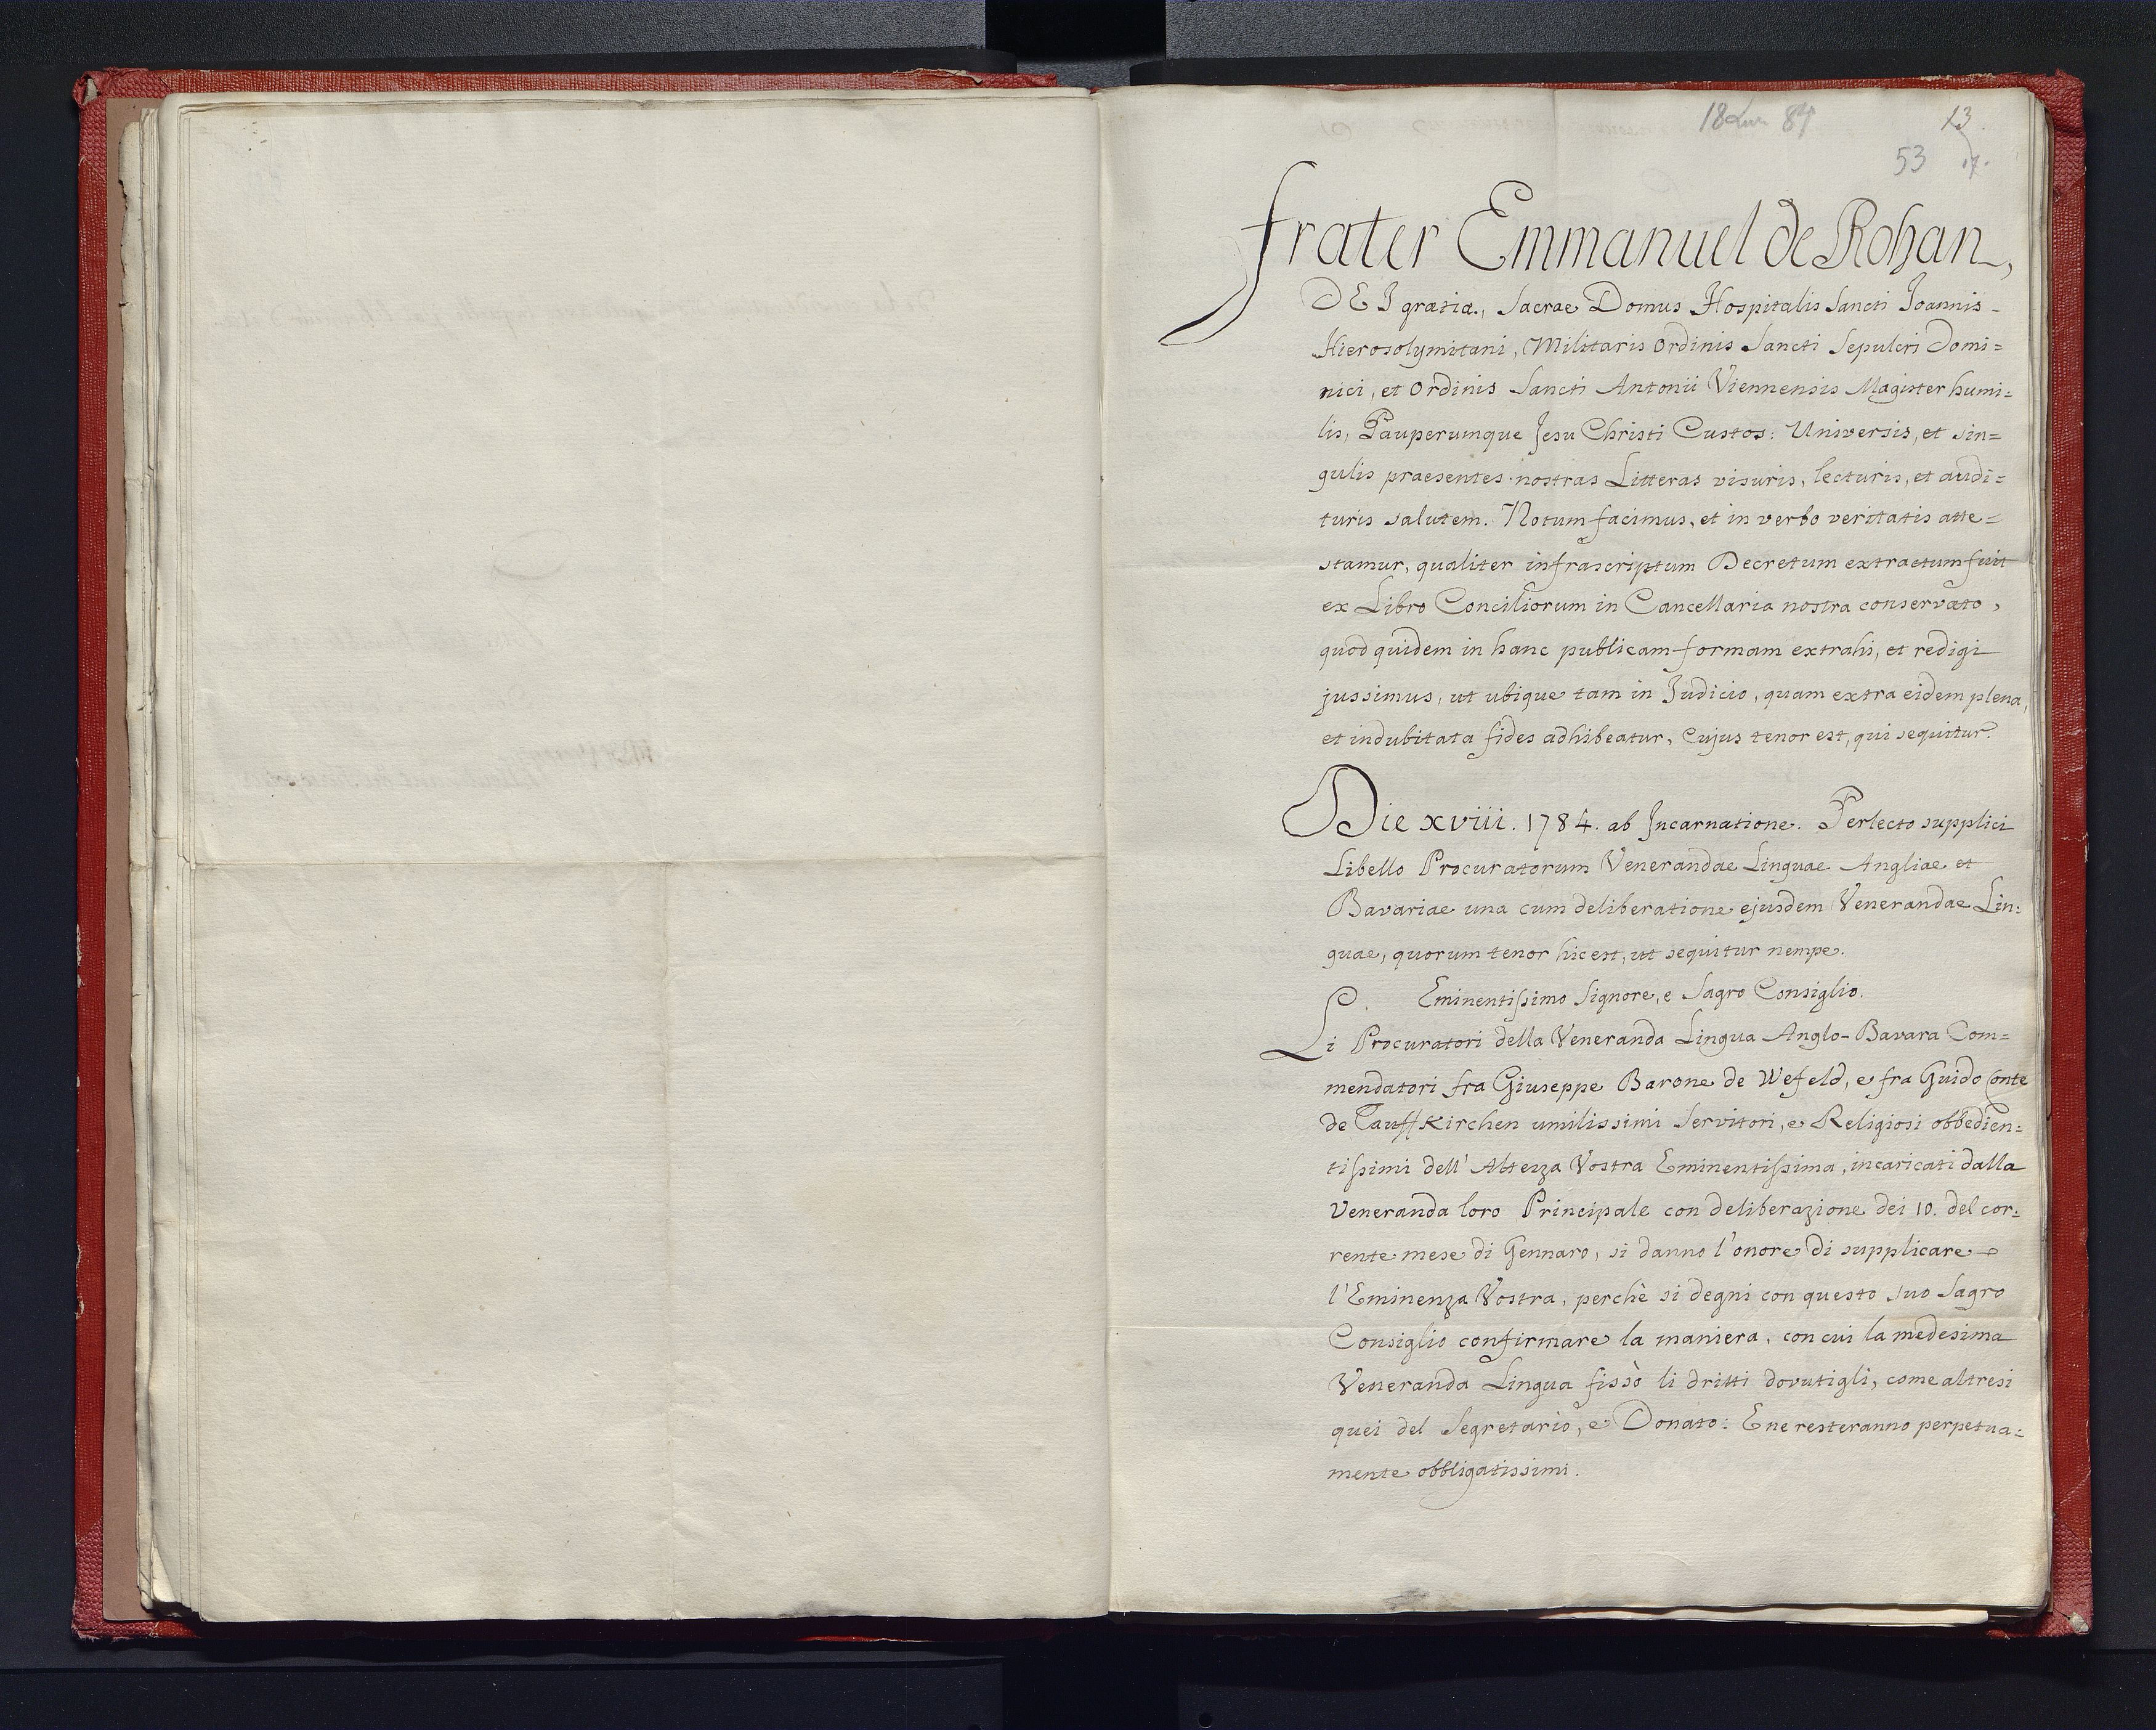 18 84
13
53 17.
frater Emmanuel de Rohan,
DEI gratia, Sacrae Domus Hospitalis Sancti Joannis
Hierosolymitani, Militaris Ordinis Sancti Sepulcri Domi=
nici, et Ordinis Sancti Antonii Viennensis Magister humi=
lis, Pauperumque Jesu Christi Custos: Universis, et sin=
gulis praesentes nostras Litteras visuris, lecturis, et audi=
turis salutem. Notum facimus, et in verbo veritatis atte=
stamur, qualiter infrascriptum Decretum extractum fuit
ex Libro Conciliorum in Cancellaria nostra conservato,
quod quidem in hanc publicam formam extrahi, et redigi
jussimus, ut ubique tam in Judicio, quam extra eidem plena,
et indubitata fides adhibeatur, Cujus tenor est, qui sequitur.
Die xviii. 1784. ab Incarnatione. Perlecto supplici
Libello Procuratorum Venerandae Linguae Angliae et
Bavariae una cum deliberatione ejusdem Venerandae Lin=
guae, quorum tenor hic est, ut sequitur nempe.
Eminentissimo Signore, e Sagro Consiglio.
Li Procuratori della Veneranda Lingua Anglo-Bavara Com=
mendatori fra Giuseppe Barone de Wefeld, e fra Guido Conte
de Tauffkirchen umilissimi Servitori, e Religiosi obbedien=
tissimi dell' Altezza Vostra Eminentissima, incaricati dalla
Veneranda loro Principale con deliberazione dei 10. del cor=
rente mese di Gennaro, si danno l'onore di supplicare
l'Eminenza Vostra, perchè si degni con questo suo Sagro
Consiglio confirmare la maniera, con cui la medesima
Veneranda Lingua fissò li dritti dovutigli, come altresi
quei del Segretario, e Donato: E ne resteranno perpetua=
mente obbligatissimi.